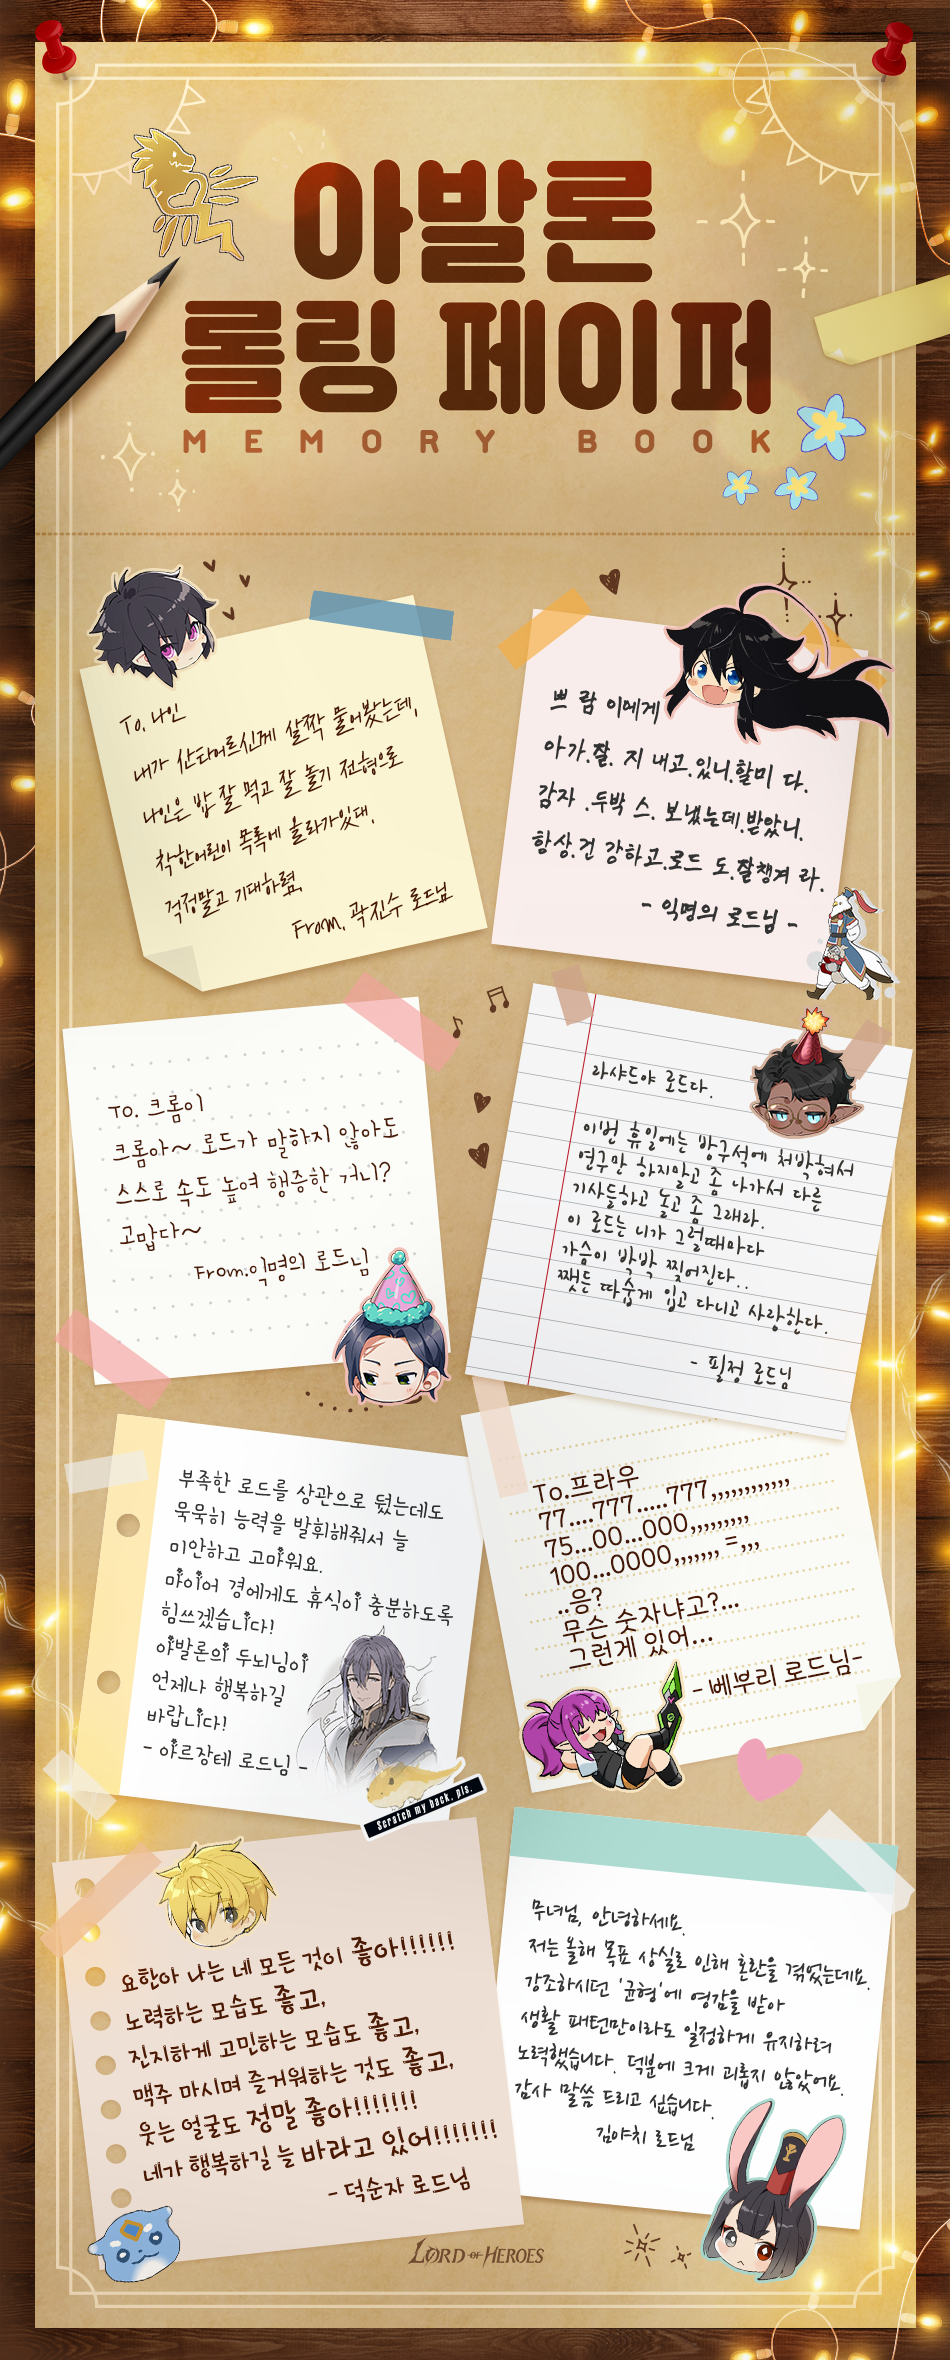 아발론
롤링 페이퍼
MEMORY BOOK
To. 나인
내가 산타어르신께 살짝 물어봤는데,
나인은 밥 잘 먹고 잘 놀기 전형으로
착한어린이 목록에 올라가있대.
걱정말고 기대하렴.
From. 곽진수 로드님
쁘 람 이에게
아가.잘. 지 내고.있니.할미 다.
감자 .두박 스. 보냈는데.받았니.
항상.건 강하고.로드 도.잘챙겨 라.
- 익명의 로드님 -
To. 크롬이
크롬아~ 로드가 말하지 않아도
스스로 속도 높여 행증한 거니?
고맙다~
From.익명의 로드님
라샤드야 로드다.
이번 휴일에는 방구석에 처박혀서
연구만 하지말고 좀 나가서 다른
기사들하고 놀고 좀 그래라.
이 로드는 니가 그럴때마다
가슴이 박박 찢어진다..
쨋든 따숩게 입고 다니고 사랑한다.
- 필정 로드님
부족한 로드를 상관으로 뒀는데도
묵묵히 능력을 발휘해줘서 늘
미안하고 고마워요.
마이어 경에게도 휴식이 충분하도록
힘쓰겠습니다!
아발론의 두뇌님이
언제나 행복하길
바랍니다!
- 야르장테 로드님 -
Scratch my back, pls.
To.프라우
77....777.....777,,,,,,,,,,,,
75...00...000,,,,,,,,,
100...0000,,,,,,, =,,,
..응?
무슨 숫자냐고?...
그런게 있어...
- 베부리 로드님-
요한아 나는 네 모든 것이 좋아!!!!!!
노력하는 모습도 좋고,
진지하게 고민하는 모습도 좋고,
맥주 마시며 즐거워하는 것도 좋고,
웃는 얼굴도 정말 좋아!!!!!!!
네가 행복하길 늘 바라고 있어!!!!!!!
- 덕순자 로드님
무녀님, 안녕하세요.
저는 올해 목표 상실로 인해 혼란을 겪었는데요.
강조하시던 '균형'에 영감을 받아
생활 패턴만이라도 일정하게 유지하려
노력했습니다. 덕분에 크게 괴롭지 않았어요.
감사 말씀 드리고 싶습니다.
김야치 로드님
LORD OF HEROES